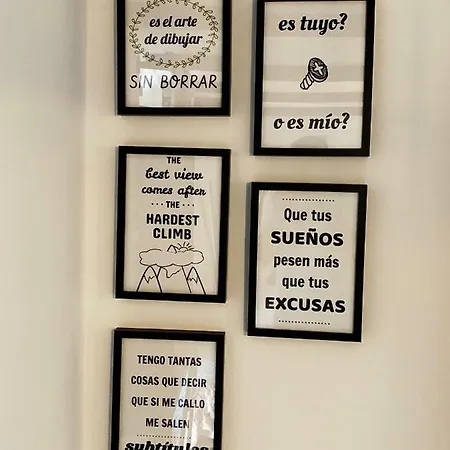 es el arte
de dibujar
SIN BORRAR
es tuyo?
o es mío?
THE
best view
comes after
THE
HARDEST
CLIMB
Que tus
SUEÑOS
pesen más
que tus
EXCUSAS
TENGO TANTAS
COSAS QUE DECIR
QUE SI ME CALLO
ME SALEN
subtítulos